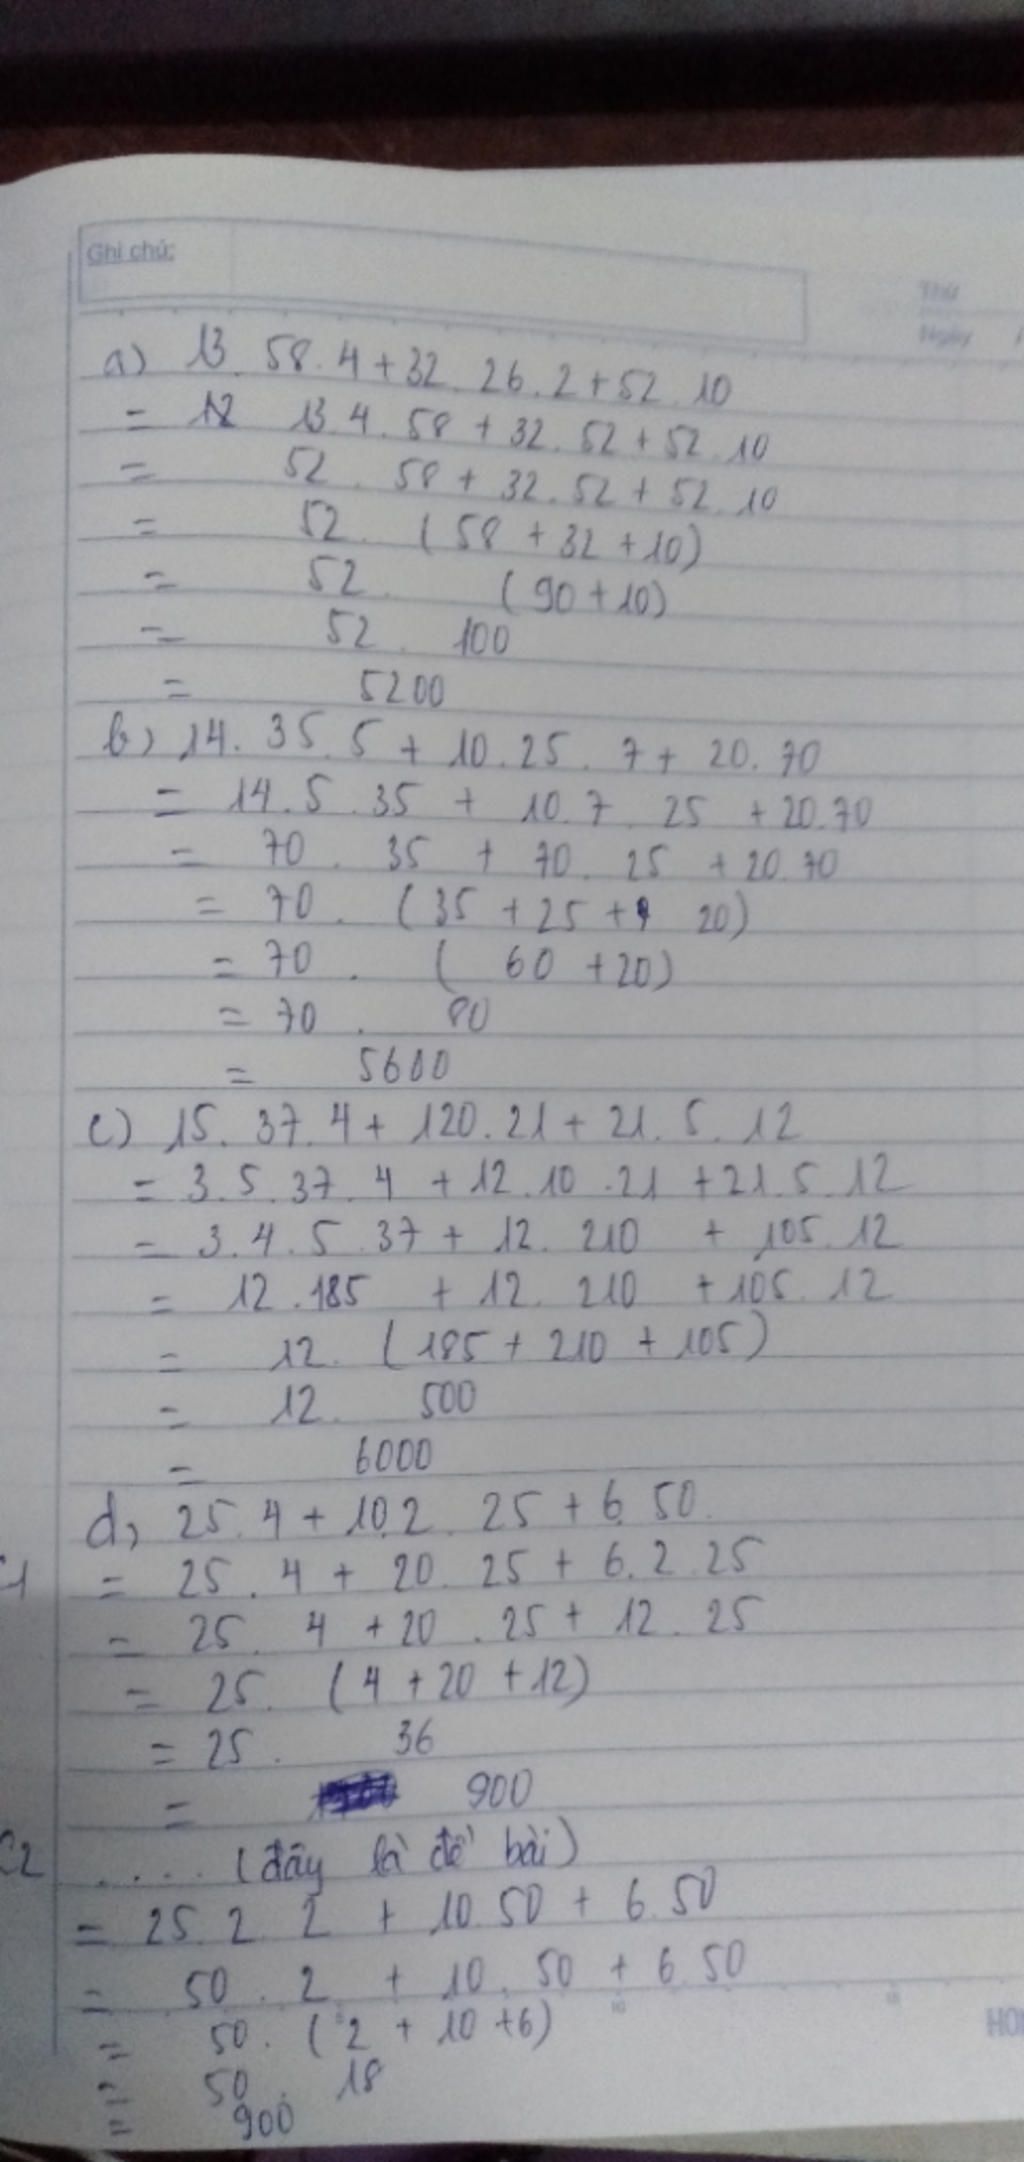 Ghi chú:
Thứ
Ngày
a) 13. 58. 4 + 32. 26. 2 + 52. 10
= 13. 4. 58 + 32. 52 + 52. 10
= 52. 58 + 32. 52 + 52. 10
= 52. (58 + 32 + 10)
= 52. (90 + 10)
= 52. 100
= 5200
b) 14. 35. 5 + 10. 25. 7 + 20. 70
= 14. 5. 35 + 10. 7. 25 + 20. 70
= 70. 35 + 70. 25 + 20. 70
= 70. (35 + 25 + 20)
= 70. (60 + 20)
= 70. 80
= 5600
c) 15. 37. 4 + 120. 21 + 21. 5. 12
= 3. 5. 37. 4 + 12. 10. 21 + 21. 5. 12
= 3. 4. 5. 37 + 12. 210 + 105. 12
= 12. 185 + 12. 210 + 105. 12
= 12. (185 + 210 + 105)
= 12. 500
= 6000
d) 25. 4 + 10. 2. 25 + 6. 50
C1 = 25. 4 + 20. 25 + 6. 2. 25
= 25. 4 + 20. 25 + 12. 25
= 25. (4 + 20 + 12)
= 25. 36
= 900
C2 ..... (đây là đề bài)
= 25. 2. 2 + 10. 50 + 6. 50
= 50. 2 + 10. 50 + 6. 50
= 50. (2 + 10 + 6)
= 50. 18
= 900